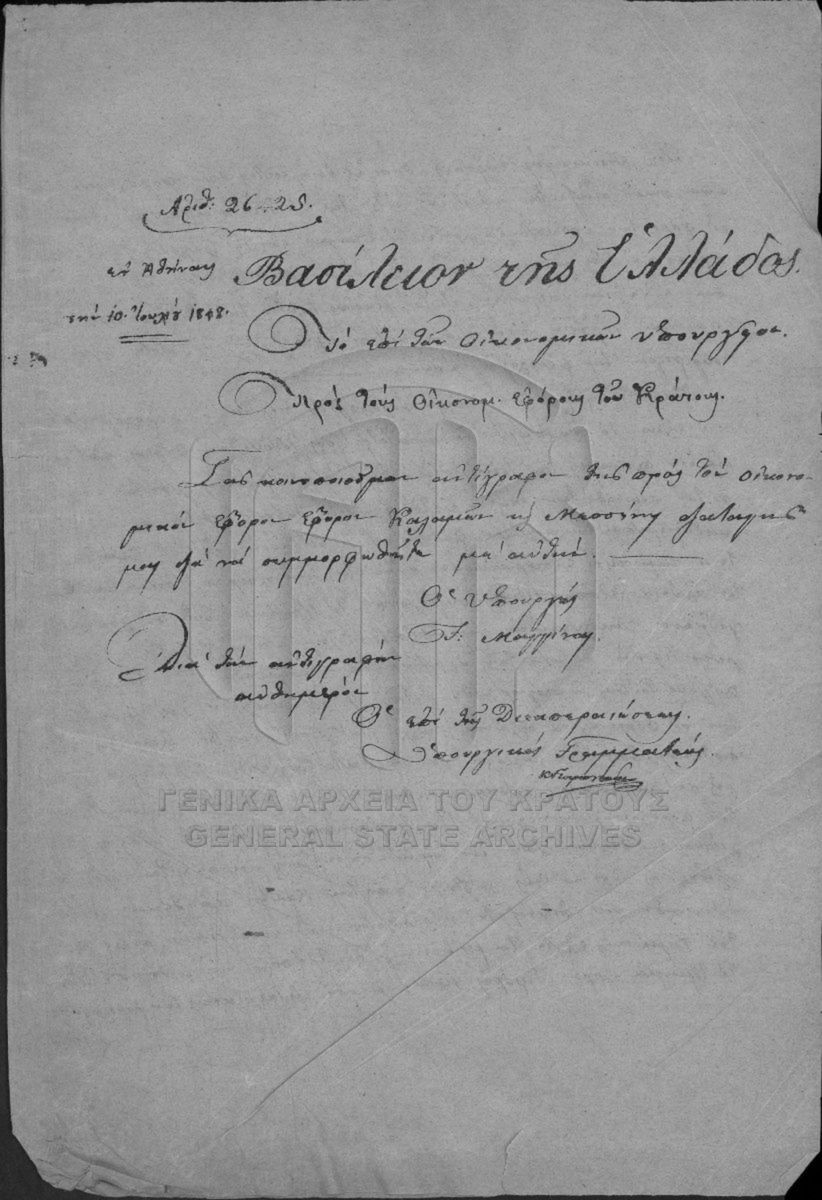 Αριθ: 26.25.
εν Αθήναις
την 10 Ιουλίου 1848.
Βασίλειον της Ελλάδος.
Το επί των Οικονομικών υπουργείον.
Προς τους Οικονομ. εφόρους του Κράτους.
Σας κοινοποιούμεν αντίγραφον της προς τον οικονο-
μικόν έφορον έφορον Καλαμών κ Μεσσήνης διαταγής
μου δια να συμμορφωθήτε με αυτήν.
Ο Υπουργός
Διά την αντιγραφήν
αυθημερόν
Ο επί της Διεκπεραιώσεως
Υπουργικός Γραμματεύς.
ΓΕΝΙΚΑ ΑΡΧΕΙΑ ΤΟΥ ΚΡΑΤΟΥΣ
GENERAL STATE ARCHIVES